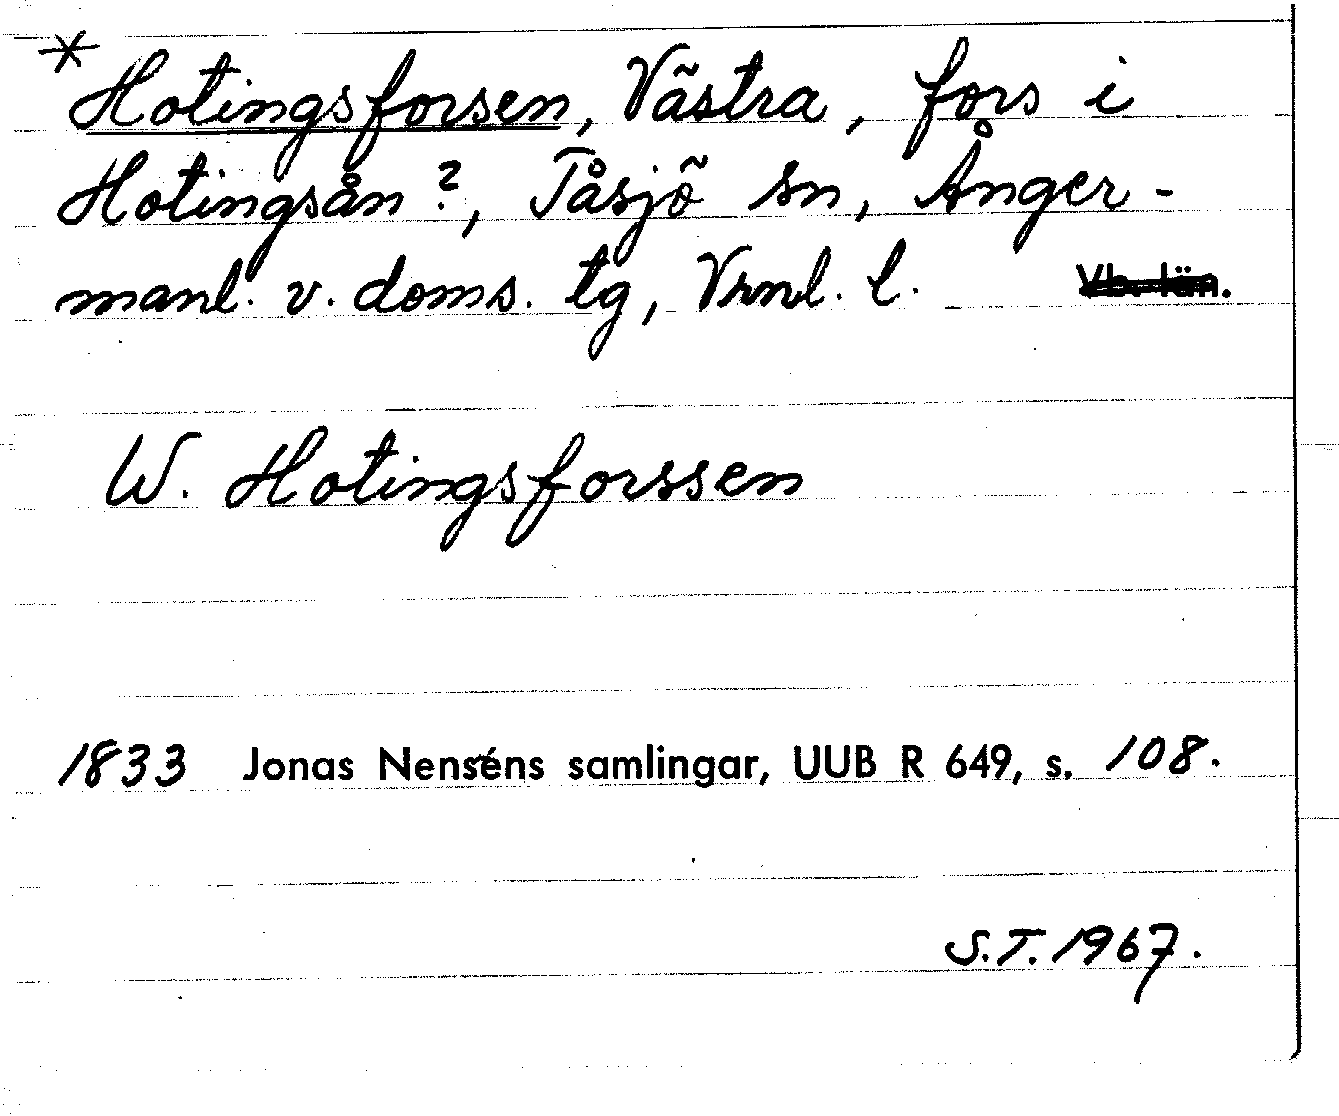 * Hotingsforsen, Västra, fors i
Hotingsån?, Tåsjö sn, Ånger-
manl. v. doms. tg, Vrnl. l. Vb. län.
W. Hotingsforssen
1833 Jonas Nenséns samlingar, UUB R 649, s. 108.
S.T. 1967.